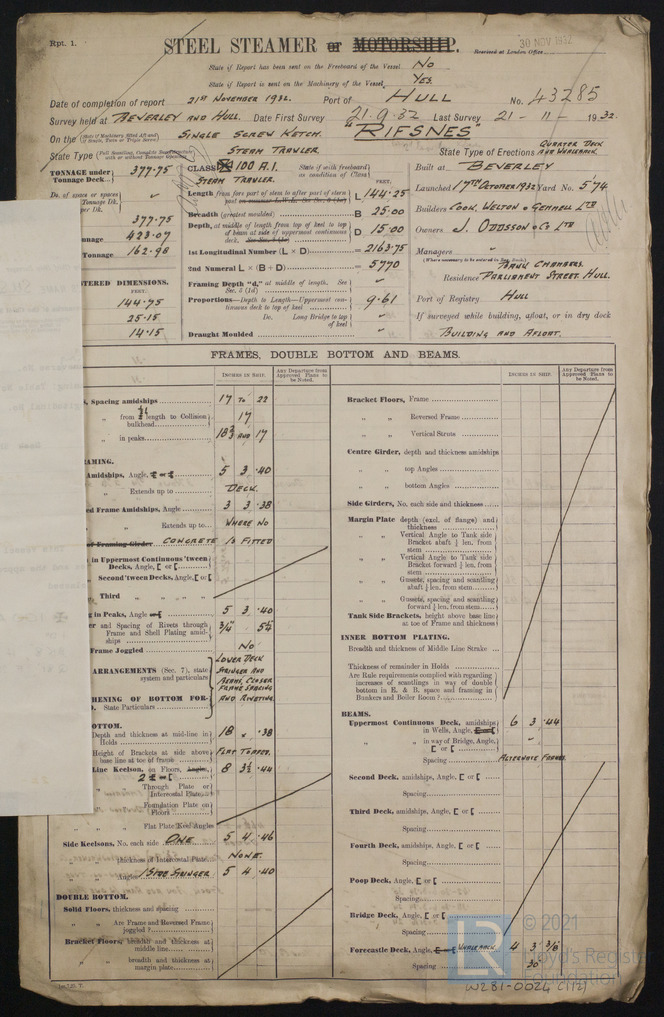 Rpt. 1.
STEEL STEAMER or MOTORSHIP.
30 NOV 1932
Received at London Office
State if Report has been sent on the Freeboard of the Vessel No
State if Report is sent on the Machinery of the Vessel Yes.
Date of completion of report 21st November 1932. Port of Hull No. 43285
Survey held at Beverley and Hull. Date First Survey 21.9.32 Last Survey 21-11-1932.
On the Single Screw Ketch. "Rifsnes"
State Type Steam Trawler. State Type of Erections Quarter Deck and Whaleback.
TONNAGE under Tonnage Deck 377.75
377.75
423.07
Tonnage 162.98
REGISTERED DIMENSIONS.
FEET.
144.75
25.15
14.15
CLASS 100 A.1. State if with freeboard as condition of Class
Steam Trawler.
FEET.
L 144.25
Breadth (greatest moulded) B 25.00
Depth, at middle of length from top of keel to top of beam at side of uppermost continuous deck. D 15.00
1st Longitudinal Number (L × D) = 2163.75
2nd Numeral L × (B + D) = 5770
Framing Depth "d," at middle of length. See Sec. 3 (1d)
Proportions—Depth to Length—Uppermost continuous deck to top of keel 9.61
Do. Long Bridge to top of keel
Draught Moulded
Built at Beverley
Launched 17th October 1932 Yard No. 574
Builders Cook, Welton & Gemmell Ltd
Owners J. Oddsson & Co Ltd
Managers "
(Where necessary to be entered in Reg. Book.)
Residence Bank Chambers. Parliament Street, Hull.
Port of Registry Hull
If surveyed while building, afloat, or in dry dock
Building and Afloat.
FRAMES, DOUBLE BOTTOM AND BEAMS.
INCHES IN SHIP.
Any Departure from Approved Plans to be Noted.
INCHES IN SHIP.
Any Departure from Approved Plans to be Noted.
Spacing amidships 17 to 22
length to Collision bulkhead 17
in peaks
Amidships, Angle 5 3 .40
Extends up to Deck.
Frame Amidships, Angle 3 3 .38
Extends up to Where no
Framing Girder Concrete is fitted
in Uppermost Continuous 'tween Decks, Angle, [ or [
Second 'tween Decks, Angle, [ or [
Third
in Peaks, Angle 5 3 .40
and Spacing of Rivets through Frame and Shell Plating amidships 3/4"
Frame Joggled No
ARRANGEMENTS (Sec. 7), state system and particulars
Lower Deck Stringer and Beams, Closer Frame Spacing and Riveting.
State Particulars
Depth and thickness at mid-line in Holds 18 × .38
Height of Brackets at side above base line at toe of frame Flat Topped.
Line Keelson, on Floors, Angles, 8 3½ .44
Through Plate or Intercostal Plate
Foundation Plate on Floors
Flat Plate Keel Angles
Side Keelsons, No. each side One 5 4 .46
thickness of Intercostal Plate None.
Angles 1 Side Stringer 5 4 .40
DOUBLE BOTTOM.
Solid Floors, thickness and spacing
Are Frame and Reversed Frame joggled ?
Bracket Floors, breadth and thickness at middle line
breadth and thickness at margin plate
Bracket Floors, Frame
Reversed Frame
Vertical Struts
Centre Girder, depth and thickness amidships
top Angles
bottom Angles
Side Girders, No. each side and thickness
Margin Plate depth (excl. of flange) and thickness
Vertical Angle to Tank side Bracket abaft ¼ len. from stem
Vertical Angle to Tank side Bracket forward ¼ len. from stem
Gussets, spacing and scantling abaft ¼ len. from stem
Gussets, spacing and scantling forward ¼ len. from stem
Tank Side Brackets, height above base line at toe of Frame and thickness
INNER BOTTOM PLATING.
Breadth and thickness of Middle Line Strake
Thickness of remainder in Holds
Are Rule requirements complied with regarding increases of scantlings in way of double bottom in E. & B. space and framing in Bunkers and Boiler Room ?
BEAMS.
Uppermost Continuous Deck, amidships in Wells, Angle, 6 3 .44
in way of Bridge, Angle, [ or [
Spacing Alternate Frames
Second Deck, amidships, Angle, [ or [
Spacing
Third Deck, amidships, Angle, [ or [
Spacing
Fourth Deck, amidships, Angle, [ or [
Spacing
Poop Deck, Angle, [ or [
Spacing
Bridge Deck, Angle, [ or [
Spacing
Forecastle Deck, Angle, Whaleback 4 3 3/8
Spacing 30"
© 2021
Lloyd's Register
Foundation
W281-0024 (1/2)